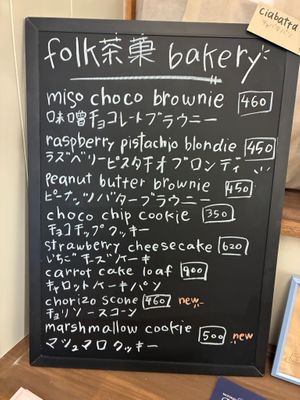 ciabatta
チャバッタ
folk茶菓 bakery
miso choco brownie 460
味噌チョコレートブラウニー
raspberry pistachio blondie 450
ラズベリーピスタチオブロンディ
peanut butter brownie 450
ピーナッツバターブラウニー
choco chip cookie 350
チョコチップクッキー
strawberry cheesecake 620
いちごチーズケーキ
carrot cake loaf 400
キャロットケーキパン
chorizo scone 460 new
チョリソースコーン
marshmallow cookie 500 new
マシュマロクッキー